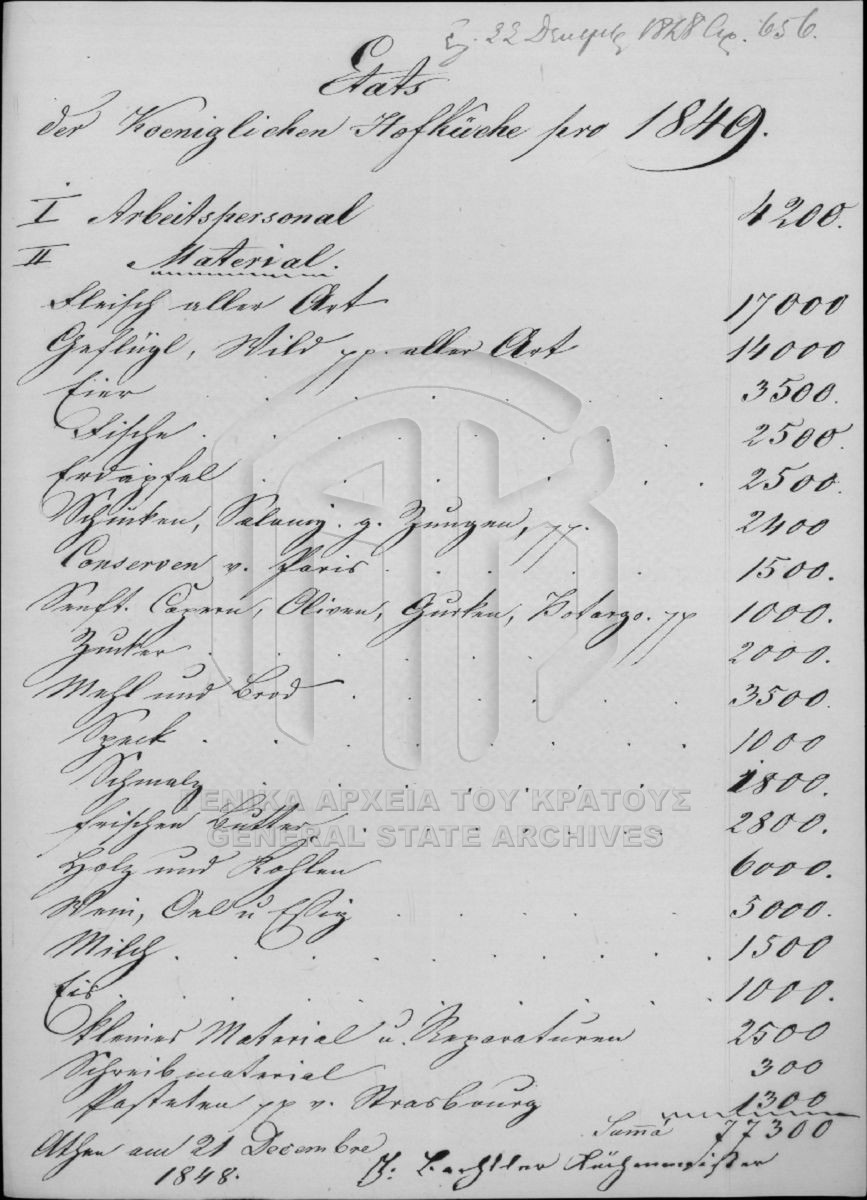 22 Δεκεμβ 1848 656.
Etats
der Koeniglichen Hofküche pro 1849.
I Arbeitspersonal 4200.
II Material.
Fleisch aller Art 17000
Geflügl, Wild pp. aller Art 14000
Eier 3500.
Fische 2500.
Erdäpfel 2500.
Schinken, Salamy. g. Zungen, pp. 2400
Conserven v. Paris 1500.
Senft. Capern, Oliven, Gurken, Botargo. pp 1000.
Zucker 2000.
Mehl und Brod 3500.
Speck 1000
Schmalz 1800.
frischen Butter 2800.
Holz und Kohlen 6000.
Wein, Oel u Essig 5000.
Milch 1500
Eis 1000.
kleines Material u. Reparaturen 2500
Schreibmaterial 300
Pasteten pp v. Strasbourg 1300
Suma 77300
Athen am 21 Decembre
1848.
Küchenmeister
ΓΕΝΙΚΑ ΑΡΧΕΙΑ ΤΟΥ ΚΡΑΤΟΥΣ
GENERAL STATE ARCHIVES